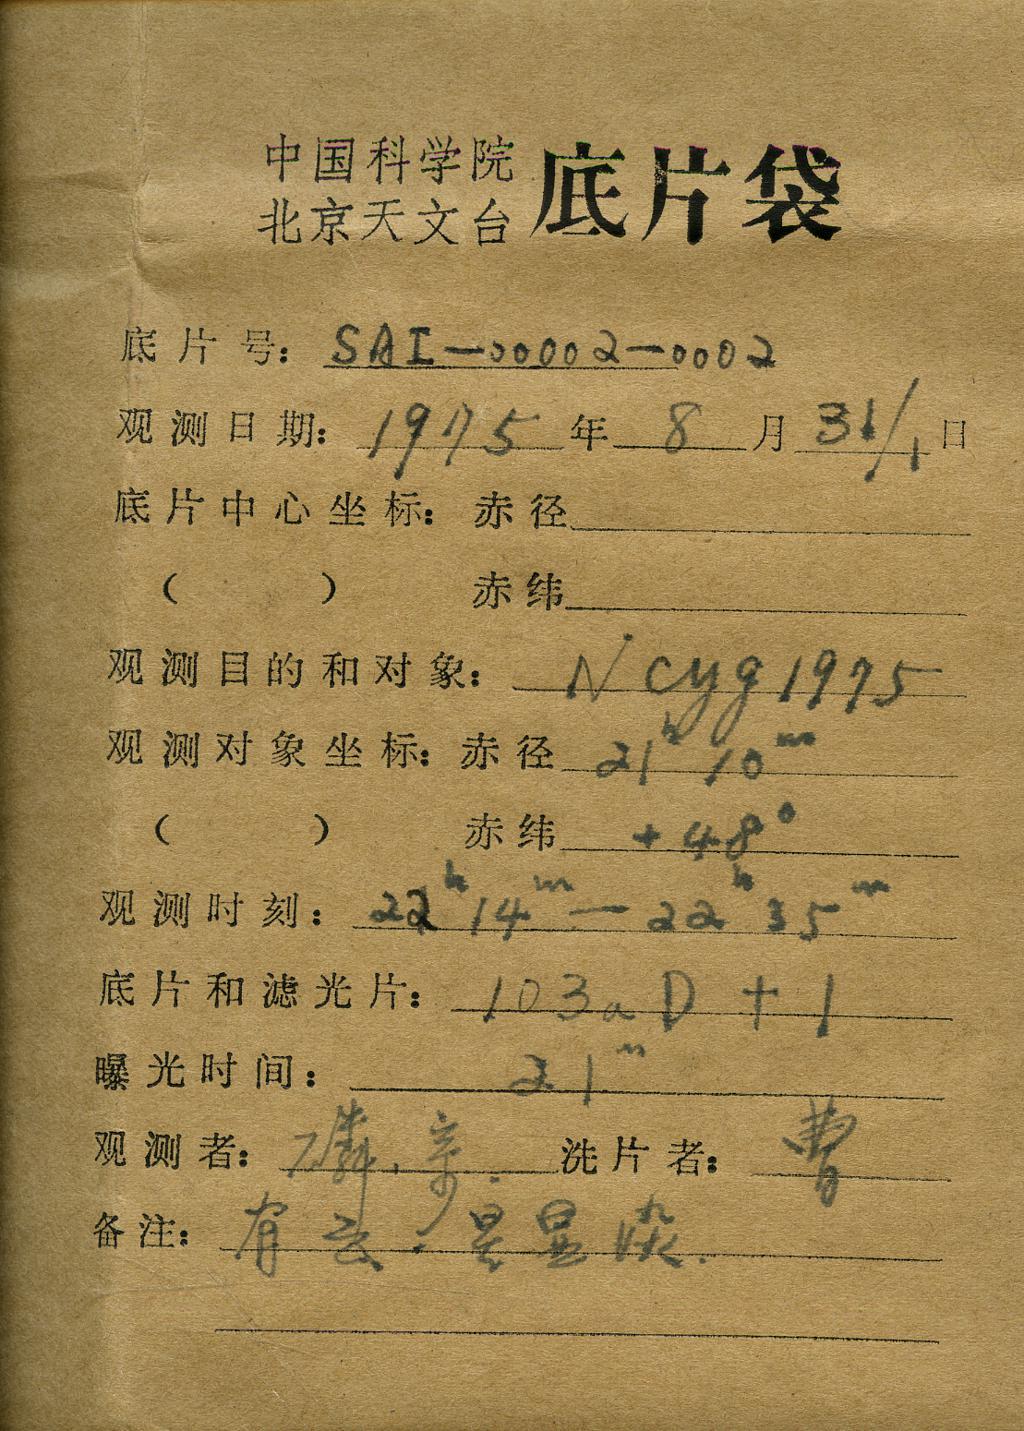 中国科学院
北京天文台 底片袋
底片号: SAI-00002-0002
观测日期: 1975年8月31/1日
底片中心坐标: 赤径
( ) 赤纬
观测目的和对象: N Cyg 1975
观测对象坐标: 赤径 21h 10m
( ) 赤纬 +48°
观测时刻: 22h 14m - 22h 35m
底片和滤光片: 103aD + 1
曝光时间: 21m
观测者: 洗片者: 曹
备注: 有云. 星显淡.